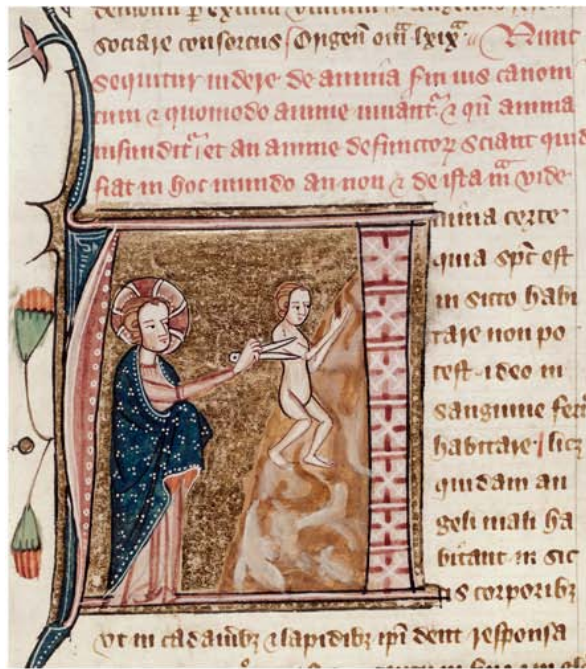 sociare consortus Origen oml lxix Nunc
sequitur videre de anima scdm ius canoni
cum & quomodo anime iuvant & qn anima
infundit et an anime defunctor sciant quid
fiat in hoc mundo an non & de ista ma vide
nima certe
quia spc est
in sicco habi
tare non po
test ideo in
sanguine fert
habitare licz
quidam an
geli mali ha
bitant in sic
is corporibz
ut in cadavibz & lapidibz ipi dent responsa